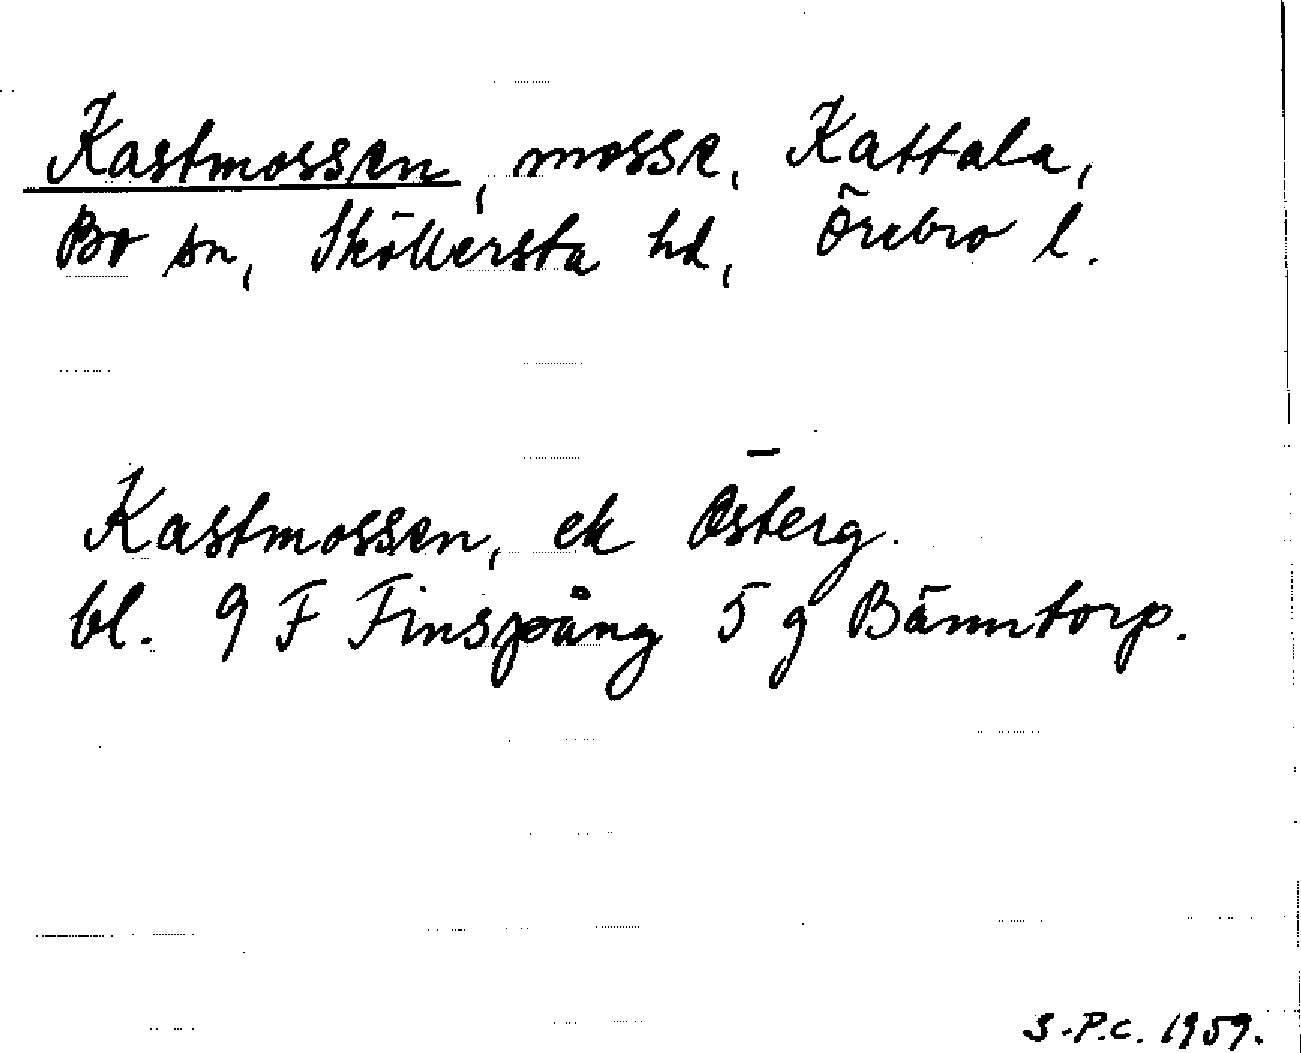 Kastmossen, mosse, Kattala,
Bo sn, Sköllersta hd, Örebro l.
Kastmossen, ek Österg.
bl. 9 F Finspång 5 g Bänntorp.
S.P.C. 1959.